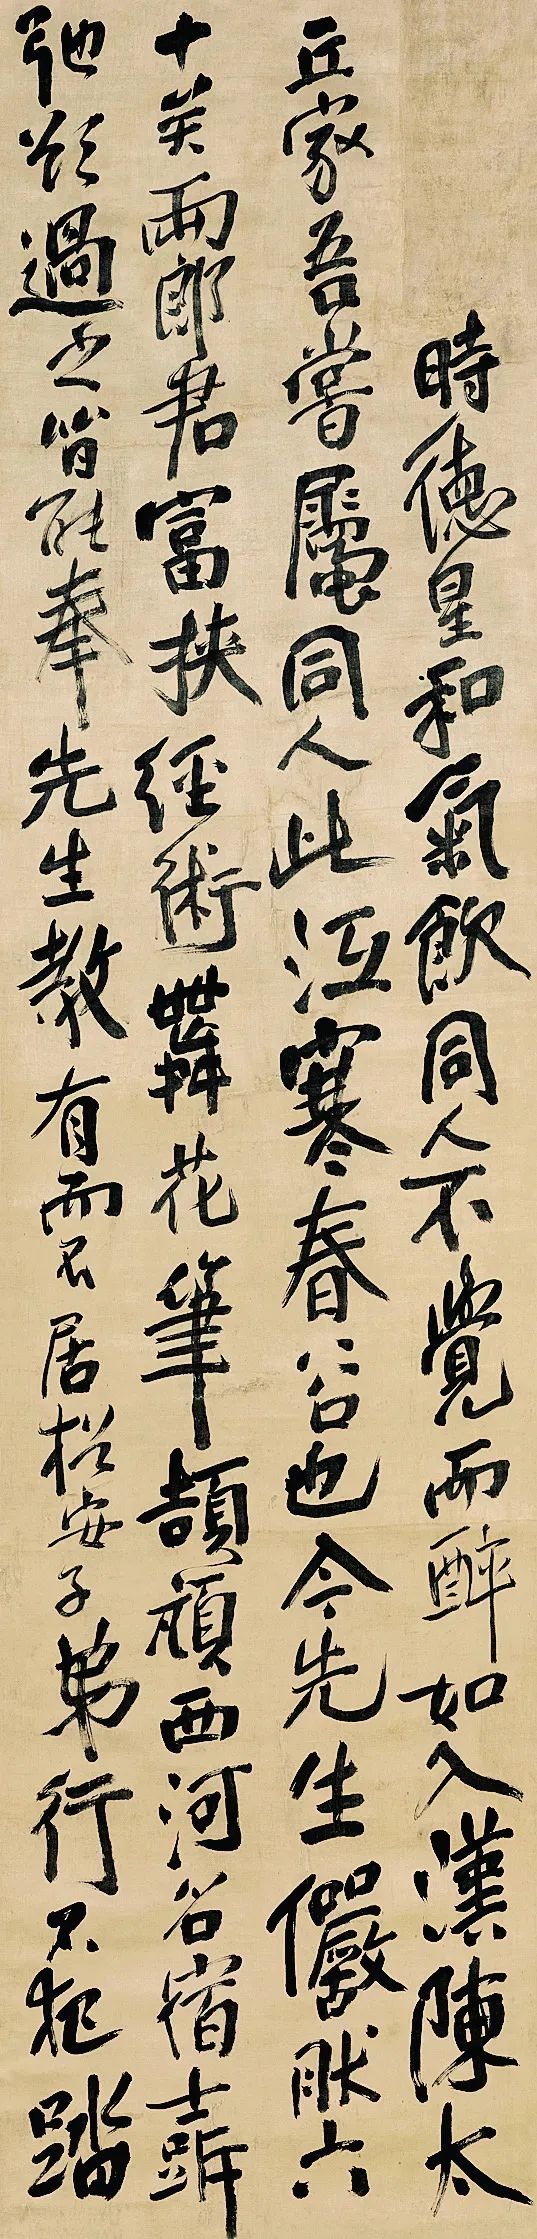 時德星和氣飲同人不覺而醉如入漢陳太
丘家吾嘗屬同人此沍寒春谷也今先生儼然六
十矣兩郎君富挾經術舞花筆頡頏西河名宿士
弛欵過之皆能奉先生教有而不居松安子弟行不犯